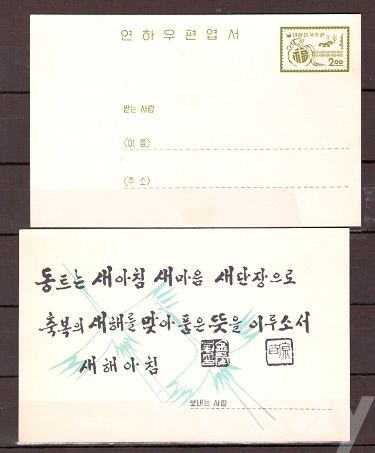 연하우편엽서
대한민국우표
200
받는 사람
(이 름)
(주 소)
동트는 새아침 새마음 새단장으로
축복의 새해를 맞아 품은 뜻을 이루소서
새해아침
보내는 사람